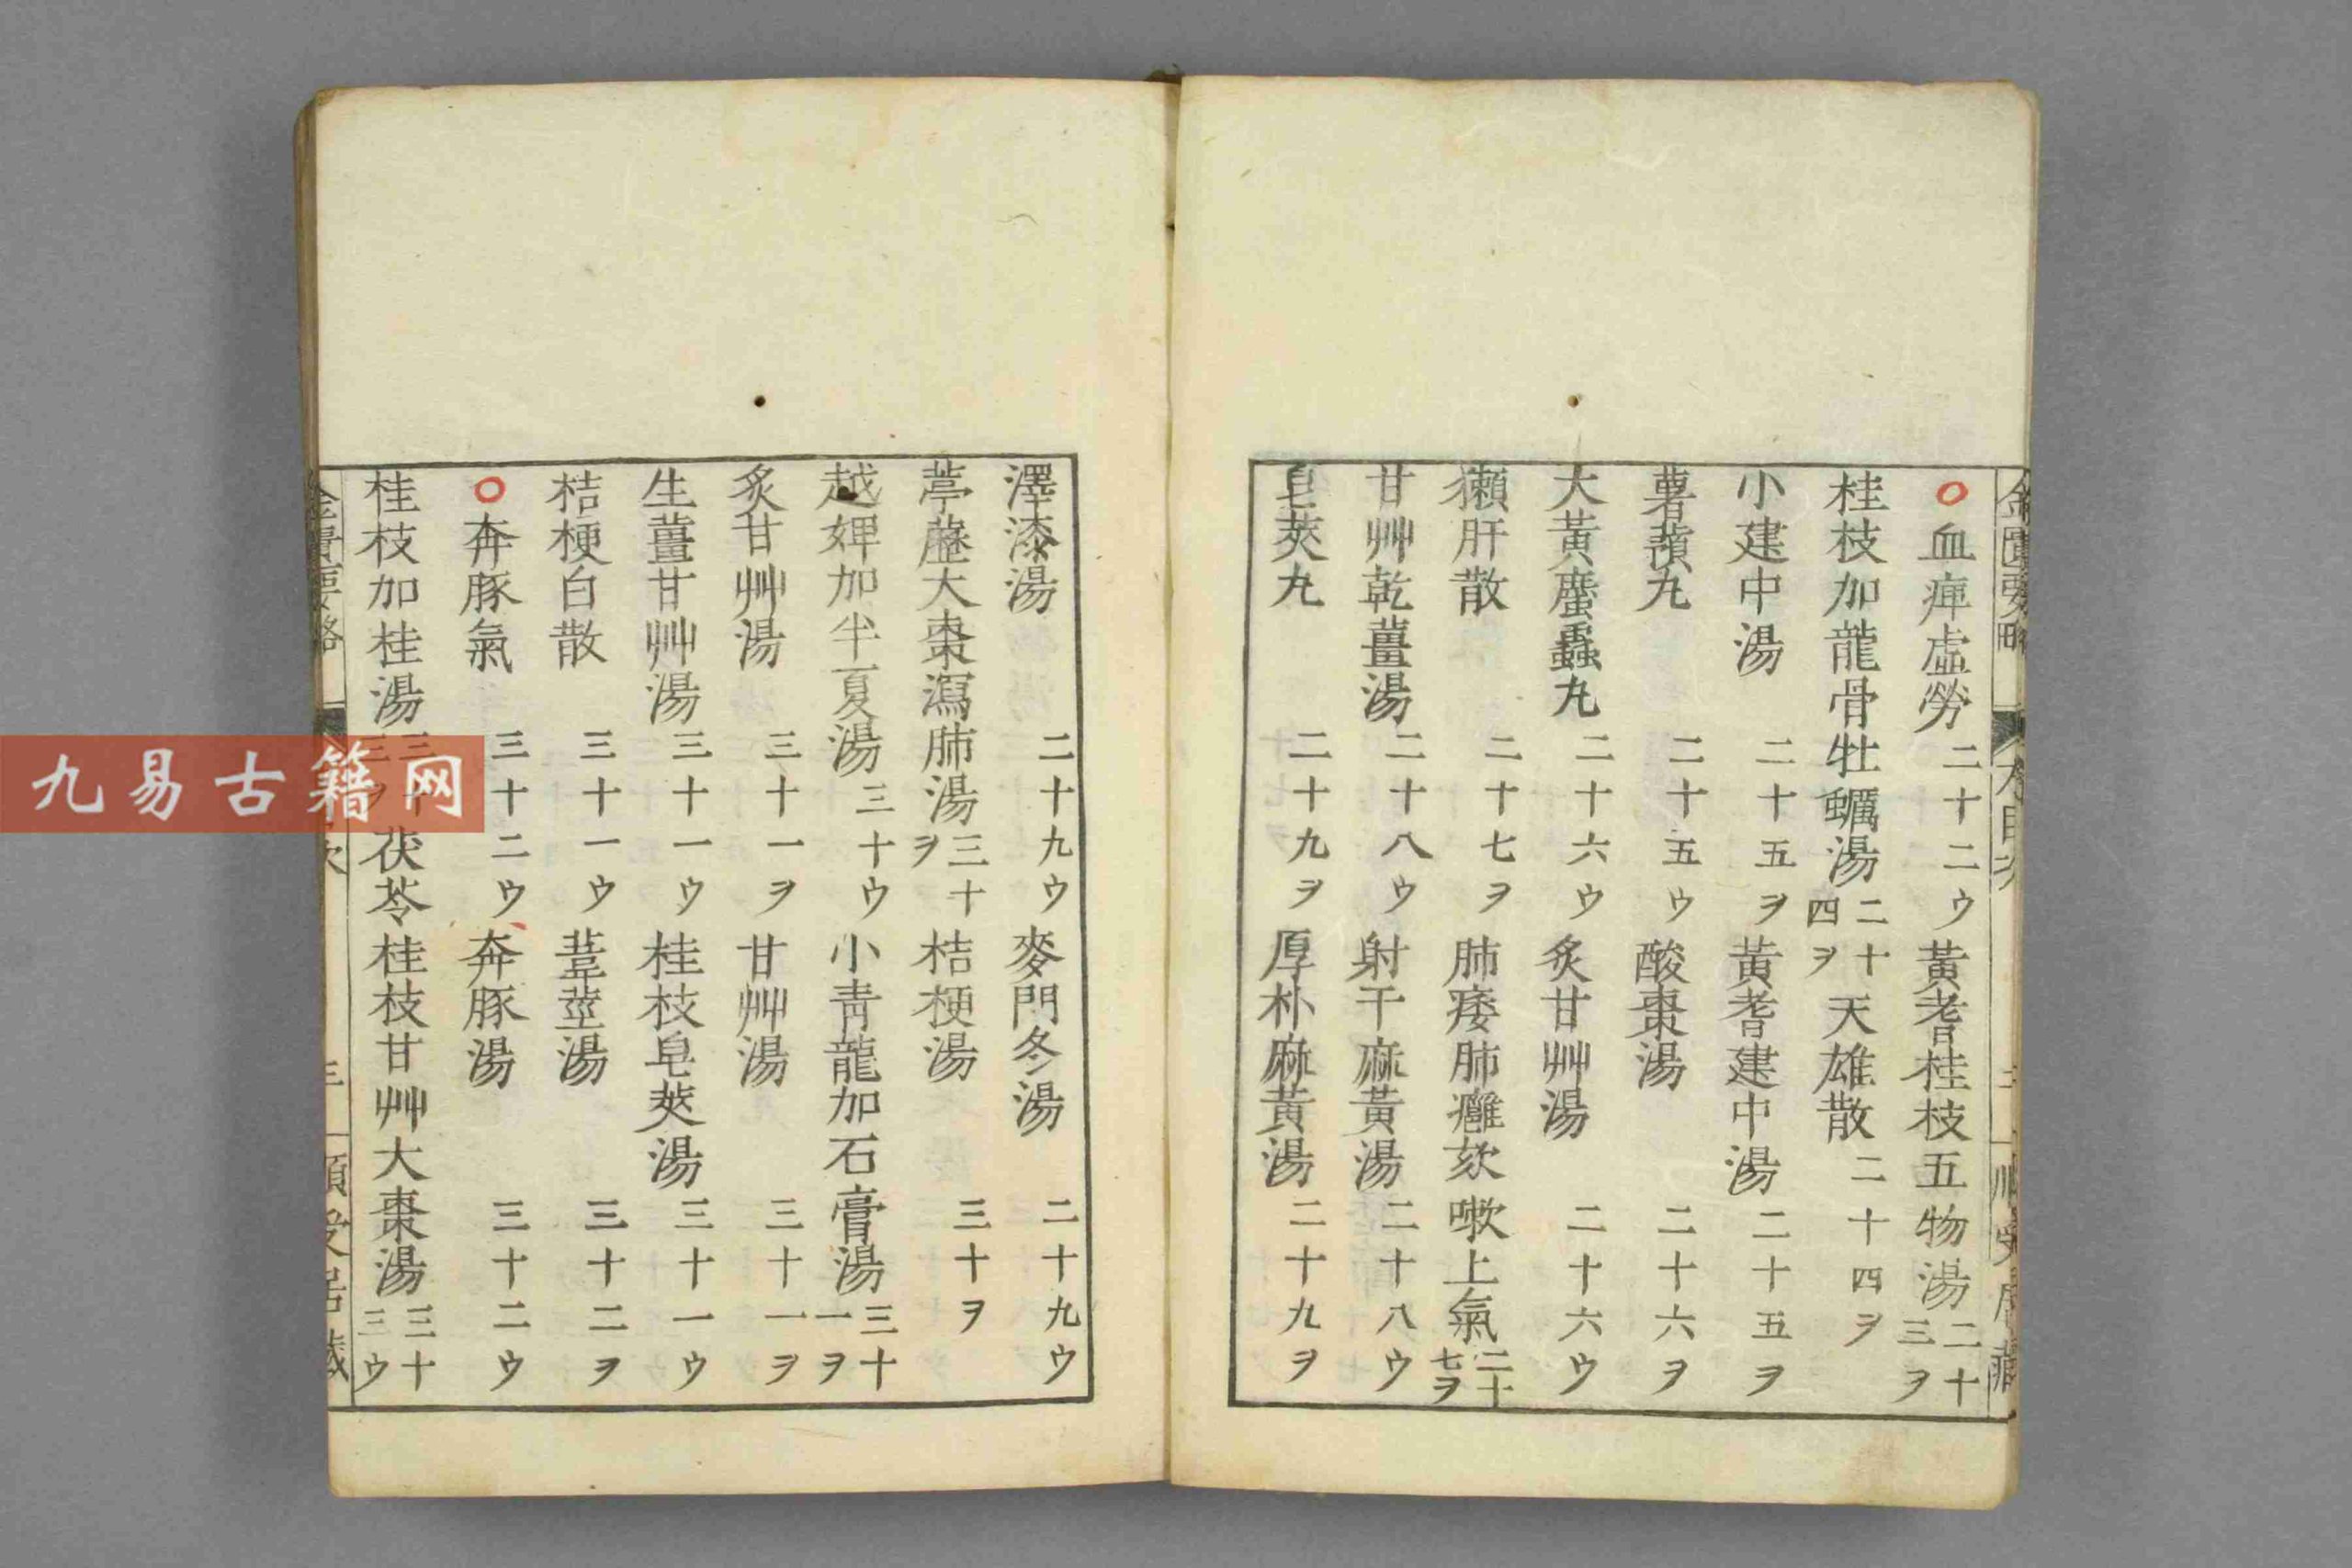 血痺虛勞 二十二ウ 黃耆桂枝五物湯 二十三ヲ
桂枝加龍骨牡蠣湯 二十四ヲ 天雄散 二十四ヲ
小建中湯 二十五ヲ 黃耆建中湯 二十五ヲ
薯蕷丸 二十五ウ 酸棗湯 二十六ヲ
大黃䗪蟲丸 二十六ウ 炙甘艸湯 二十六ウ
獺肝散 二十七ヲ 肺痿肺癰欬嗽上氣 二十七ヲ
甘艸乾薑湯 二十八ウ 射干麻黃湯 二十八ウ
皂莢丸 二十九ヲ 厚朴麻黃湯 二十九ヲ
澤漆湯 二十九ウ 麥門冬湯 二十九ウ
葶藶大棗瀉肺湯 三十ヲ 桔梗湯 三十ヲ
越婢加半夏湯 三十ウ 小青龍加石膏湯 三十一ヲ
炙甘艸湯 三十一ヲ 甘艸湯 三十一ヲ
生薑甘艸湯 三十一ウ 桂枝皂莢湯 三十一ウ
桔梗白散 三十一ウ 葦莖湯 三十二ヲ
奔豚氣 三十二ウ 奔豚湯 三十二ウ
桂枝加桂湯 三十三ヲ 茯苓桂枝甘艸大棗湯 三十三ウ
九易古籍网